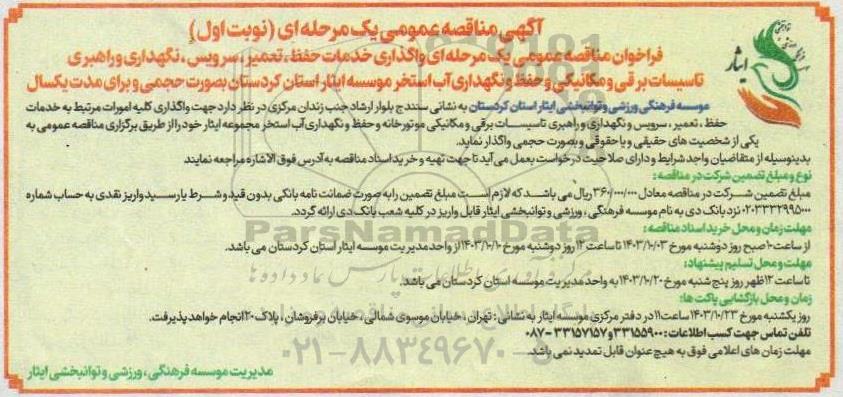 آگهی مناقصه عمومی یک مرحله ای (نوبت اول)
فراخوان مناقصه عمومی یک مرحله ای واگذاری خدمات حفظ، تعمیر، سرویس، نگهداری و راهبری
تاسیسات برقی و مکانیکی و حفظ و نگهداری آب استخر موسسه ایثار استان کردستان بصورت حجمی و برای مدت یکسال
ایثار
موسسه فرهنگی ورزشی و توانبخشی ایثار استان کردستان به نشانی سنندج بلوار ارشاد جنب زندان مرکزی در نظر دارد جهت واگذاری کلیه امورات مرتبط به خدمات
حفظ، تعمیر، سرویس و نگهداری و راهبری تاسیسات برقی و مکانیکی موتورخانه و حفظ و نگهداری آب استخر مجموعه ایثار خود را از طریق برگزاری مناقصه عمومی به
یکی از شخصیت های حقیقی و یا حقوقی و بصورت حجمی واگذار نماید.
بدینوسیله از متقاضیان واجد شرایط و دارای صلاحیت درخواست بعمل می آید تا جهت تهیه و خرید اسناد مناقصه به آدرس فوق الاشاره مراجعه نمایند
نوع و مبلغ تضمین شرکت در مناقصه:
مبلغ تضمین شرکت در مناقصه معادل ۳۶۰/۰۰۰/۰۰۰ ریال می باشد که لازم است مبلغ تضمین را به صورت ضمانت نامه بانکی بدون قید و شرط یا رسید واریز نقدی به حساب شماره
۰۲۰۳۳۳۲۹۹۵۰۰۰ نزد بانک دی به نام موسسه فرهنگی، ورزشی و توانبخشی ایثار قابل واریز در کلیه شعب بانک دی ارائه گردد.
مهلت زمان و محل خرید اسناد مناقصه:
از ساعت ۱۰ صبح روز دوشنبه مورخ ۱۴۰۳/۱۰/۰۳ تا ساعت ۱۲ روز دوشنبه مورخ ۱۴۰۳/۱۰/۱۰ از واحد مدیریت موسسه ایثار استان کردستان می باشد.
مهلت و محل تسلیم پیشنهاد:
تا ساعت ۱۲ ظهر روز پنج شنبه مورخ ۱۴۰۳/۱۰/۲۰ به واحد مدیریت موسسه استان کردستان می باشد.
زمان و محل بازگشایی پاکت ها:
روز یکشنبه مورخ ۱۴۰۳/۱۰/۲۳ ساعت ۱۱ در دفتر مرکزی موسسه ایثار به نشانی: تهران، خیابان موسوی شمالی، خیابان برفروشان، پلاک ۲۰ انجام خواهد پذیرفت.
تلفن تماس جهت کسب اطلاعات: ۳۳۱۵۵۹۰۰ و ۳۳۱۵۷۱۵۷ - ۰۸۷
مهلت زمان های اعلامی فوق به هیچ عنوان قابل تمدید نمی باشد.
مدیریت موسسه فرهنگی، ورزشی و توانبخشی ایثار
ParsNamadData
۰۲۱-۸۸۳۴۹۶۷۰-۵